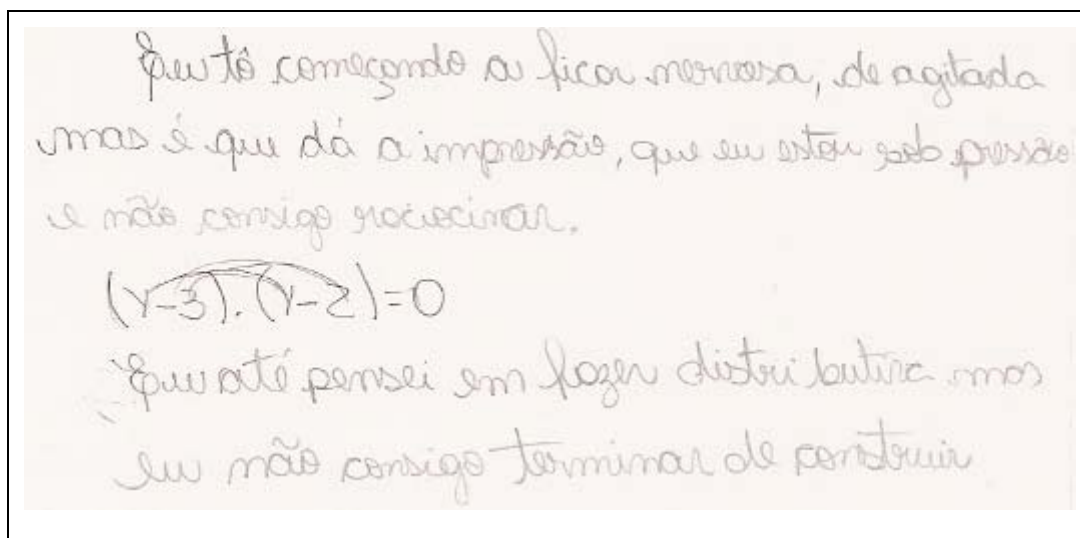 Eu tô começando a ficar nervosa, de agitada
mas é que dá a impressão, que eu estou sob pressão
e não consigo raciocinar.
(y-3).(y-2)=0
Eu até pensei em fazer distributiva mas
eu não consigo terminar de construir